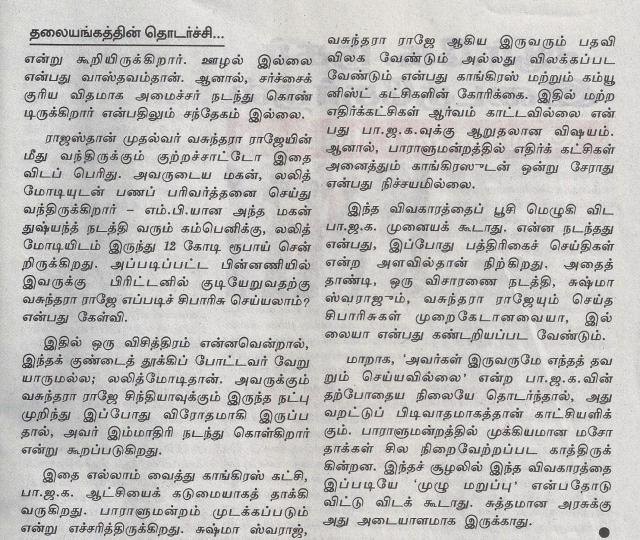 தலையங்கத்தின் தொடர்ச்சி...
என்று கூறியிருக்கிறார். ஊழல் இல்லை
என்பது வாஸ்தவம்தான். ஆனால், சர்ச்சைக்
குரிய விதமாக அமைச்சர் நடந்து கொண்
டிருக்கிறார் என்பதிலும் சந்தேகம் இல்லை.
ராஜஸ்தான் முதல்வர் வசுந்தரா ராஜேயின்
மீது வந்திருக்கும் குற்றச்சாட்டோ இதை
விடப் பெரிது. அவருடைய மகன், லலித்
மோடியுடன் பணப் பரிவர்த்தனை செய்து
வந்திருக்கிறார் – எம்.பி.யான அந்த மகன்
துஷ்யந்த் நடத்தி வரும் கம்பெனிக்கு, லலித்
மோடியிடம் இருந்து 12 கோடி ரூபாய் சென்
றிருக்கிறது. அப்படிப்பட்ட பின்னணியில்
இவருக்கு பிரிட்டனில் குடியேறுவதற்கு
வசுந்தரா ராஜே எப்படிச் சிபாரிசு செய்யலாம்?
என்பது கேள்வி.
இதில் ஒரு விசித்திரம் என்னவென்றால்,
இந்தக் குண்டைத் தூக்கிப் போட்டவர் வேறு
யாருமல்ல; லலித்மோடிதான். அவருக்கும்
வசுந்தரா ராஜே சிந்தியாவுக்கும் இருந்த நட்பு
முறிந்து இப்போது விரோதமாகி இருப்ப
தால், அவர் இம்மாதிரி நடந்து கொள்கிறார்
என்று கூறப்படுகிறது.
இதை எல்லாம் வைத்து காங்கிரஸ் கட்சி,
பா.ஜ.க. ஆட்சியைக் கடுமையாகத் தாக்கி
வருகிறது. பாராளுமன்றம் முடக்கப்படும்
என்று எச்சரித்திருக்கிறது. சுஷ்மா ஸ்வராஜ்,
வசுந்தரா ராஜே ஆகிய இருவரும் பதவி
விலக வேண்டும் அல்லது விலக்கப்பட
வேண்டும் என்பது காங்கிரஸ் மற்றும் கம்யூ
னிஸ்ட் கட்சிகளின் கோரிக்கை. இதில் மற்ற
எதிர்க்கட்சிகள் ஆர்வம் காட்டவில்லை என்
பது பா.ஜ.க.வுக்கு ஆறுதலான விஷயம்.
ஆனால், பாராளுமன்றத்தில் எதிர்க் கட்சிகள்
அனைத்தும் காங்கிரஸுடன் ஒன்று சேராது
என்பது நிச்சயமில்லை.
இந்த விவகாரத்தைப் பூசி மெழுகி விட
பா.ஜ.க. முனையக் கூடாது. என்ன நடந்தது
என்பது, இப்போது பத்திரிகைச் செய்திகள்
என்ற அளவில்தான் நிற்கிறது. அதைத்
தாண்டி, ஒரு விசாரணை நடத்தி, சுஷ்மா
ஸ்வராஜும், வசுந்தரா ராஜேயும் செய்த
சிபாரிசுகள் முறைகேடானவையா, இல்
லையா என்பது கண்டறியப்பட வேண்டும்.
மாறாக, 'அவர்கள் இருவருமே எந்தத் தவ
றும் செய்யவில்லை' என்ற பா.ஜ.க.வின்
தற்போதைய நிலையே தொடர்ந்தால், அது
வறட்டுப் பிடிவாதமாகத்தான் காட்சியளிக்
கும். பாராளுமன்றத்தில் முக்கியமான மசோ
தாக்கள் சில நிறைவேற்றப்பட காத்திருக்
கின்றன. இந்தச் சூழலில் இந்த விவகாரத்தை
இப்படியே 'முழு மறுப்பு' என்பதோடு
விட்டு விடக் கூடாது. சுத்தமான அரசுக்கு
அது அடையாளமாக இருக்காது.